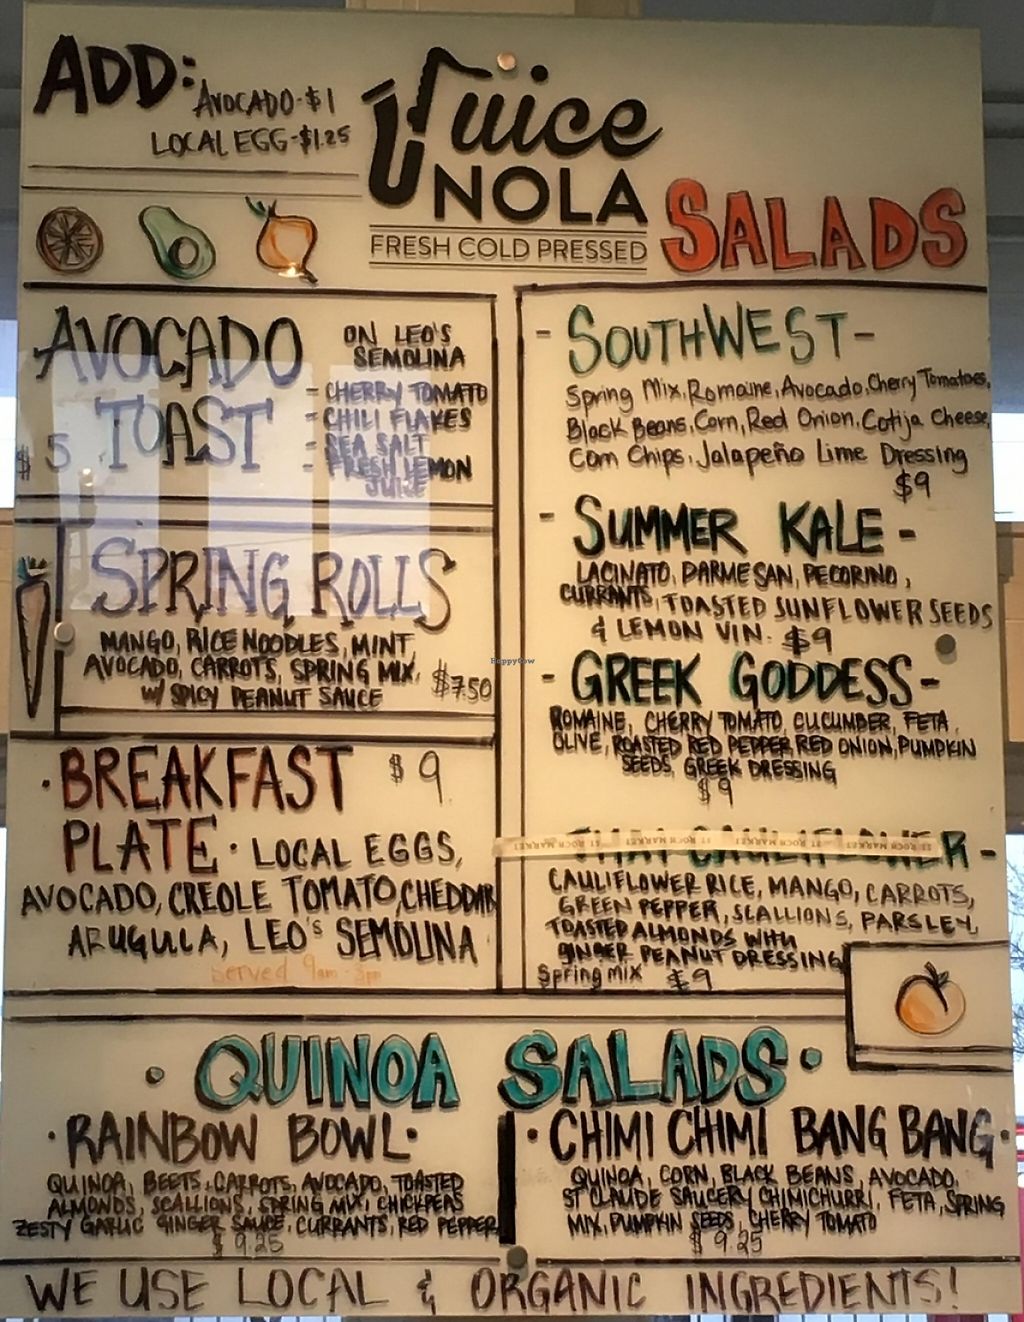 ADD:
AVOCADO-$1
LOCAL EGG-$1.25
Juice
NOLA
FRESH COLD PRESSED
AVOCADO
TOAST
$5
ON LEO'S
SEMOLINA
- CHERRY TOMATO
- CHILI FLAKES
- SEA SALT
- FRESH LEMON
JUICE
SPRING ROLLS
MANGO, RICE NOODLES, MINT,
AVOCADO, CARROTS, SPRING MIX,
W/ SPICY PEANUT SAUCE
$7.50
HappyCow
· BREAKFAST $9
PLATE · LOCAL EGGS,
AVOCADO, CREOLE TOMATO, CHEDDAR
ARUGULA, LEO'S SEMOLINA
Served 9am - 3pm
SALADS
- SOUTHWEST -
Spring Mix, Romaine, Avocado, Cherry Tomatoes,
Black Beans, Corn, Red Onion, Cotija Cheese,
Corn Chips, Jalapeño Lime Dressing
$9
- SUMMER KALE -
LACINATO, PARMESAN, PECORINO,
CURRANTS, TOASTED SUNFLOWER SEEDS
& LEMON VIN. $9
- GREEK GODDESS -
ROMAINE, CHERRY TOMATO, CUCUMBER, FETA,
OLIVE, ROASTED RED PEPPER, RED ONION, PUMPKIN
SEEDS, GREEK DRESSING
$9
THAI CAULIFLOWER -
ST. ROCH MARKET ST. ROCH MARKET ST. ROCH MARKET
CAULIFLOWER RICE, MANGO, CARROTS,
GREEN PEPPER, SCALLIONS, PARSLEY,
TOASTED ALMONDS WITH
GINGER PEANUT DRESSING
Spring mix $9
· QUINOA SALADS ·
· RAINBOW BOWL ·
QUINOA, BEETS, CARROTS, AVOCADO, TOASTED
ALMONDS, SCALLIONS, SPRING MIX, CHICKPEAS
ZESTY GARLIC GINGER SAUCE, CURRANTS, RED PEPPER
$9.25
· CHIMI CHIMI BANG BANG ·
QUINOA, CORN, BLACK BEANS, AVOCADO,
ST CLAUDE SAUCERY CHIMICHURRI, FETA, SPRING
MIX, PUMPKIN SEEDS, CHERRY TOMATO
$9.25
WE USE LOCAL & ORGANIC INGREDIENTS!